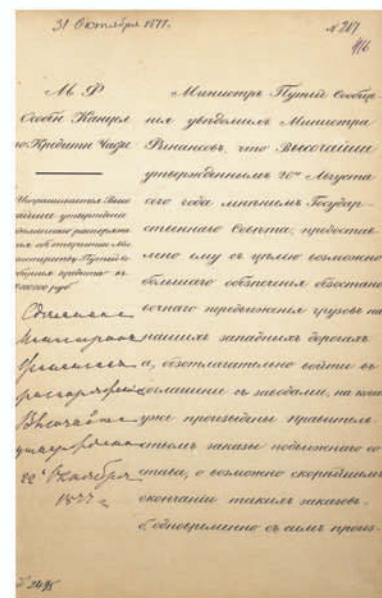 31 Октября 1877.
№ 287
М. Ф.
Особен. Канцел.
по Кредитн. Части
Сдѣланное
Министромъ
Финансовъ
Высочайше
22 Октября
1877 г.
Министръ Путей Сообще-
нія увѣдомилъ Министра
Финансовъ, что Высочайше
утвержденнымъ 20го Августа
сего года мнѣніемъ Государ-
ственнаго Совѣта, предостав-
лено ему съ цѣлью возможно
большаго обезпеченія безостано-
вочнаго передвиженія грузовъ на
нашихъ западныхъ дорогахъ
а, безотлагательно войти въ
соглашеніе съ заводами, на кои
уже произведены правитель-
ствомъ заказы подвижнаго со-
става, о возможно скорѣйшемъ
окончаніи такихъ заказовъ.
б, одновременно съ симъ произ-